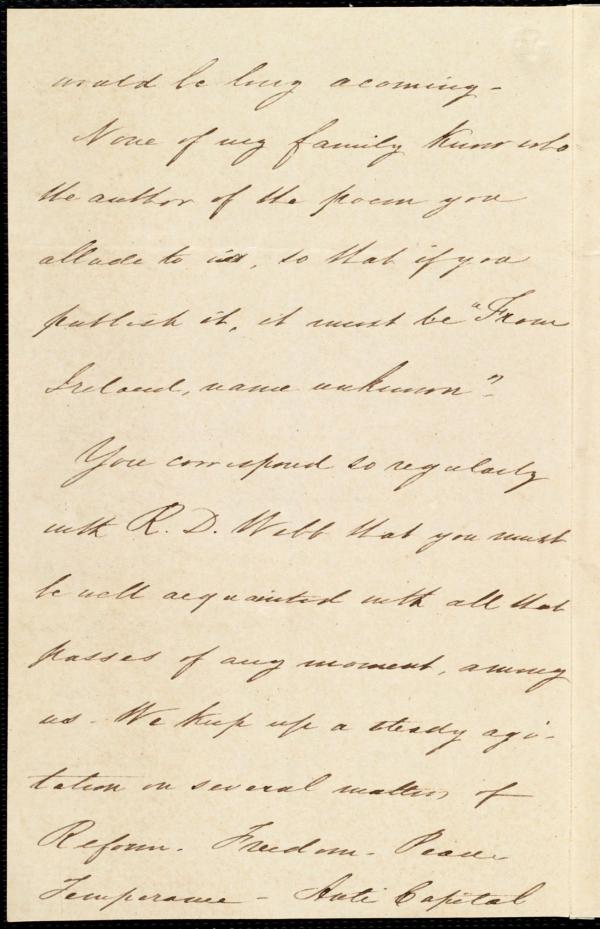 would be long acoming -
None of my family know who
the author of the poem you
allude to is, so that if you
publish it, it must be "From
Ireland, name unknown".
You correspond so regularly
with R. D. Webb that you must
be well acquainted with all that
passes of any moment, among
us - We keep up a steady agi-
tation on several matters of
Reform. Freedom - Peace
Temperance - Anti Capital